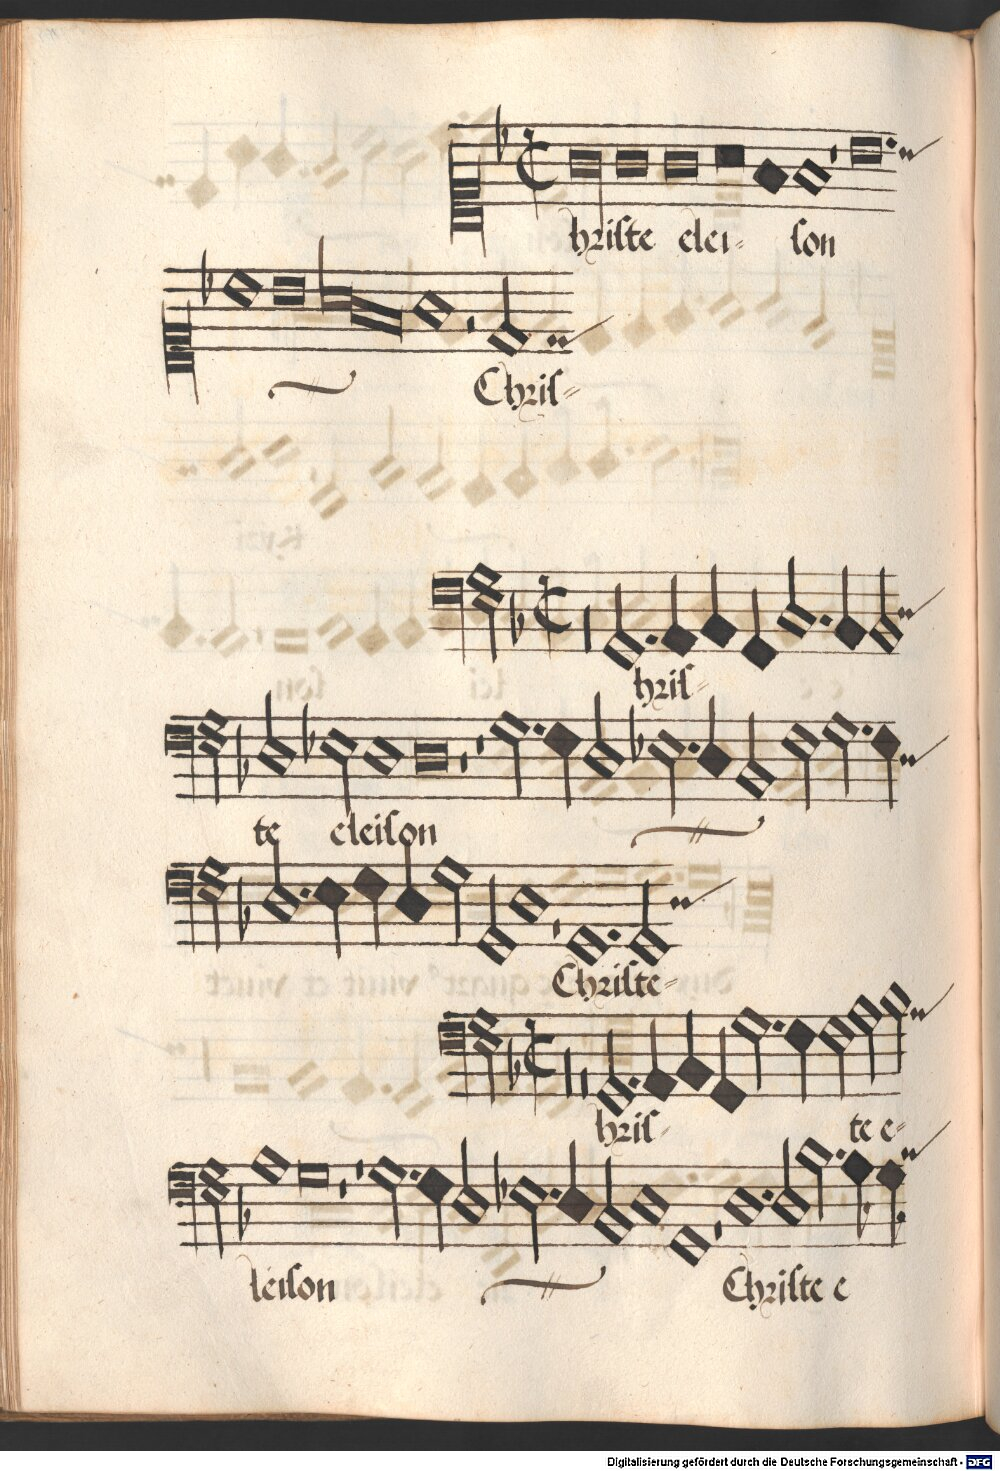 hriste elei- son
Chris-
hris-
te eleison
Christe-
hris- te e-
leison Christe e
Digitalisierung gefördert durch die Deutsche Forschungsgemeinschaft - DFG